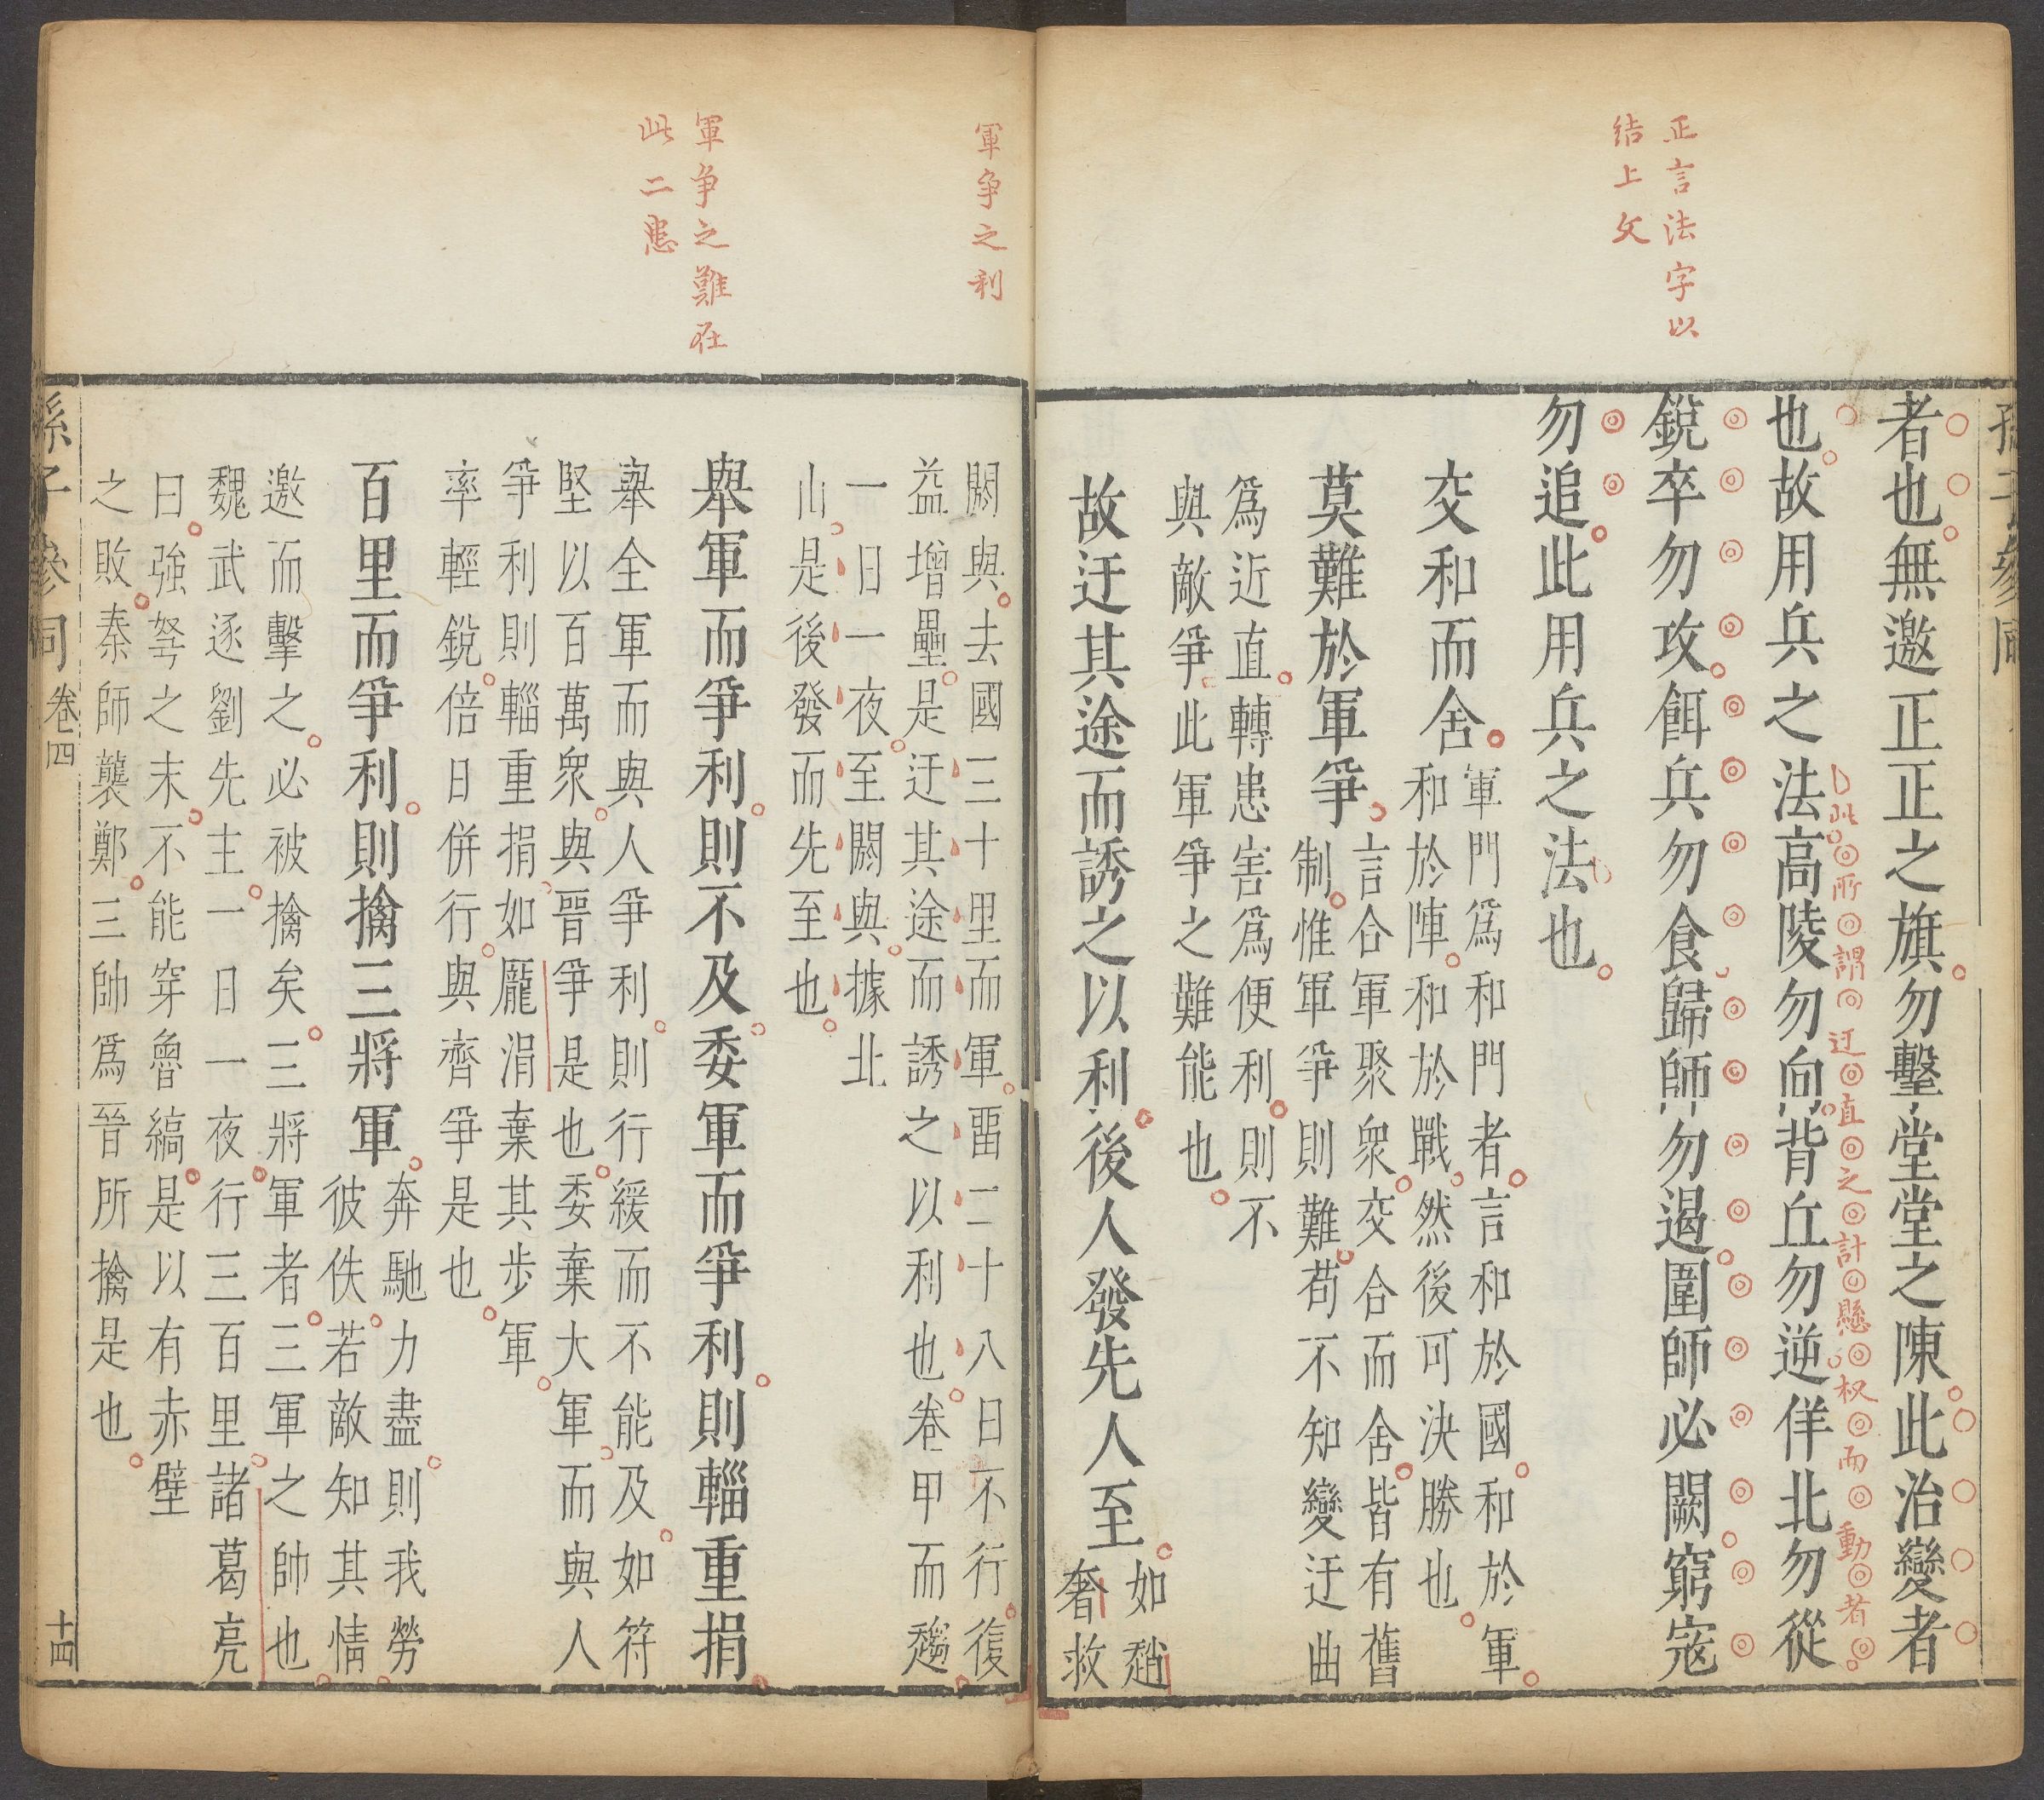 正言法字以
結上文
孫子參同
者也無邀正正之旗勿擊堂堂之陳此治變者
此所謂迂直之計懸权而動者
也故用兵之法高陵勿向背丘勿逆佯北勿從
銳卒勿攻餌兵勿食歸師勿遏圍師必闕窮寇
勿追此用兵之法也
交和而舍
軍門爲和門者言和於國和於軍
和於陣和於戰然後可決勝也
莫難於軍爭
言合軍聚衆交合而舍皆有舊
制惟軍爭則難苟不知變迂曲
爲近直轉患害爲便利則不
與敵爭此軍爭之難能也
故迂其途而誘之以利後人發先人至
如趙
奢救
軍争之利
軍争之難在
此二患
閼與去國三十里而軍畱二十八日不行復
益增壘是迂其途而誘之以利也卷甲而趨
一日一夜至閼與據北
山是後發而先至也
舉軍而爭利則不及委軍而爭利則輜重捐
舉全軍而與人爭利則行緩而不能及如符
堅以百萬衆與晉爭是也委棄大軍而與人
爭利則輜重捐如龐涓棄其步軍
率輕銳倍日併行與齊爭是也
百里而爭利則擒三將軍
奔馳力盡則我勞
彼佚若敵知其情
邀而擊之必被擒矣三將軍者三軍之帥也
魏武逐劉先主一日一夜行三百里諸葛亮
曰強弩之末不能穿魯縞是以有赤壁
之敗秦師襲鄭三帥爲晉所擒是也
孫子參同 卷四 十四